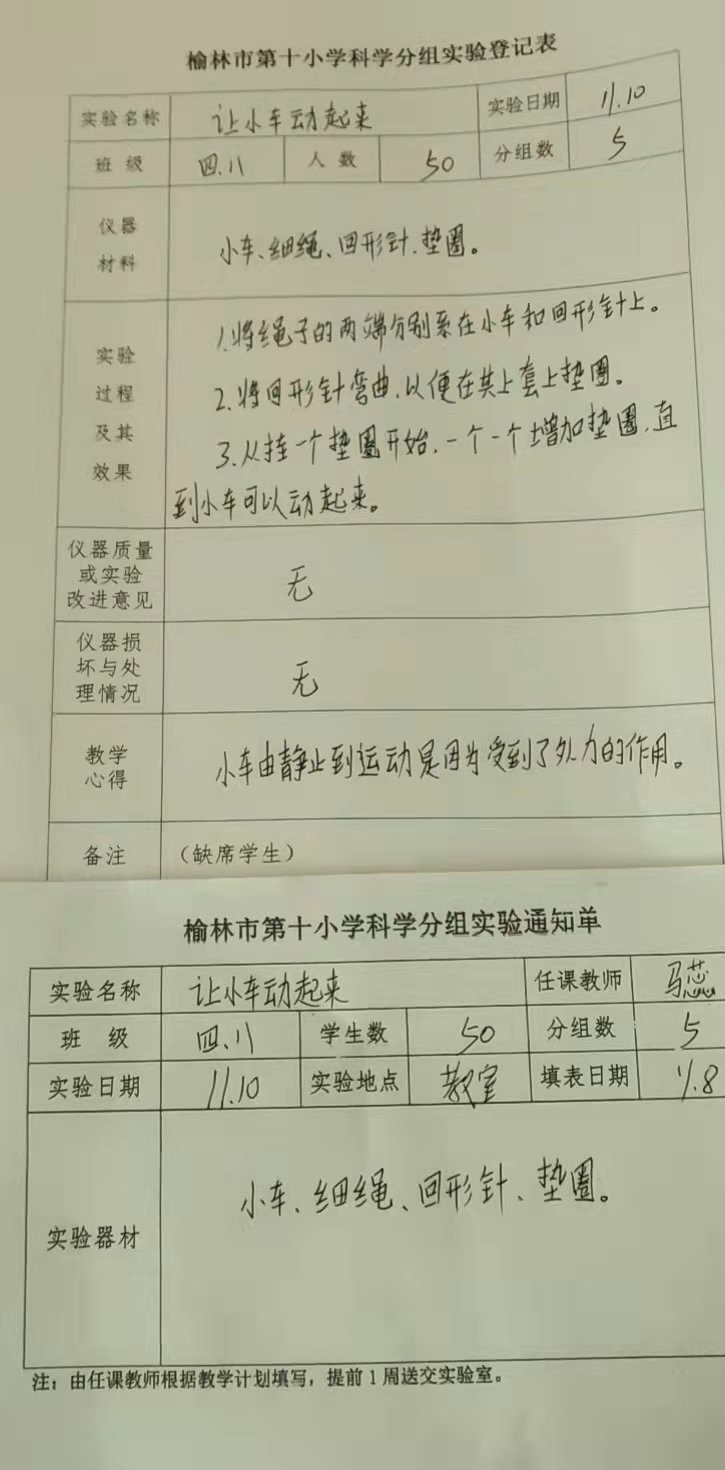 榆林市第十小学科学分组实验登记表
实验名称 让小车动起来 实验日期 11.10
班 级 四.11 人 数 50 分组数 5
仪器
材料
小车、细绳、回形针、垫圈。
实验
过程
及其
效果
1.将绳子的两端分别系在小车和回形针上。
2.将回形针弯曲,以便在其上套上垫圈。
3.从挂一个垫圈开始,一个一个增加垫圈,直
到小车可以动起来。
仪器质量
或实验
改进意见
无
仪器损
坏与处
理情况
无
教学
心得
小车由静止到运动是因为受到了外力的作用。
备注 (缺席学生)
榆林市第十小学科学分组实验通知单
实验名称 让小车动起来 任课教师 马蕊
班 级 四.11 学生数 50 分组数 5
实验日期 11.10 实验地点 教室 填表日期 11.8
实验器材 小车、细绳、回形针、垫圈。
注:由任课教师根据教学计划填写,提前1周送交实验室。